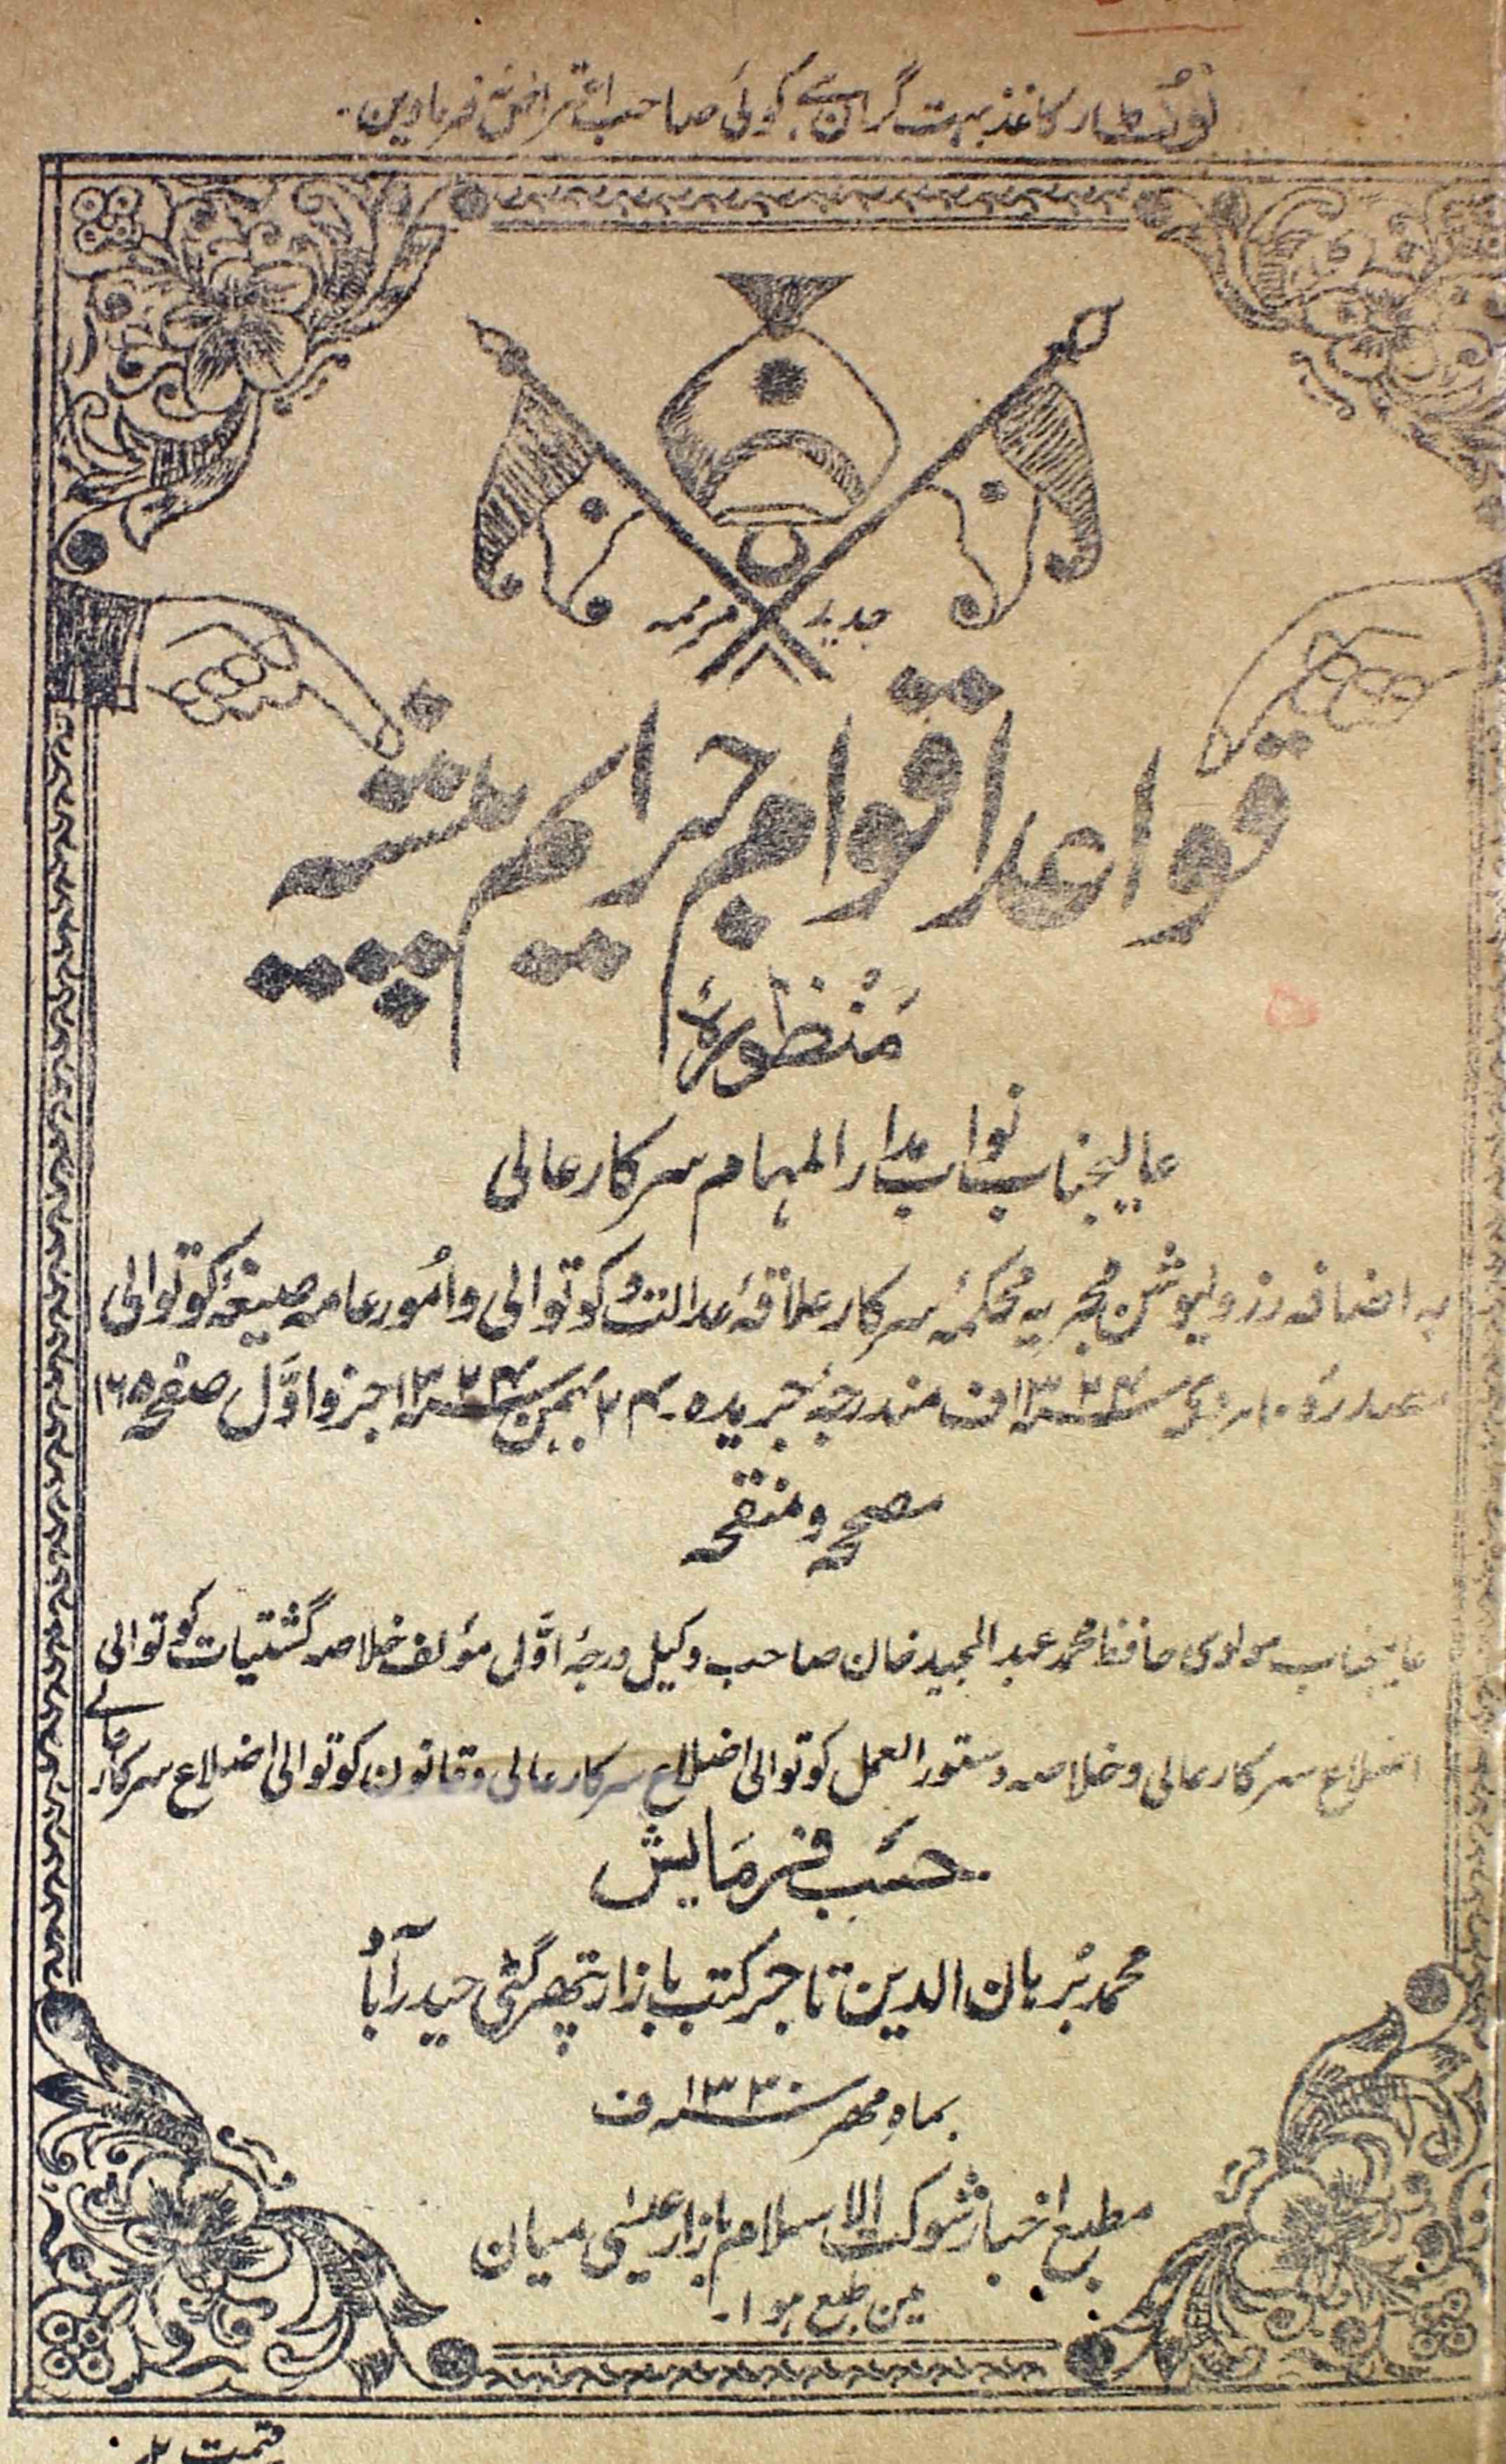 نوٹ کاغذ بہت گران ہے کوئی صاحب اعتراض نہ فرماوین۔
جدید مرممہ
قواعد اقوام جرایم پیشہ
منظورہٴ
عالیجناب نواب مدار المہام سرکار عالی
بہ اضافہ رزولیوشن مجریہ محکمہٴ سرکار علاقہٴ عدالت و کوتوالی و اُمور عامہ صیغہٴ کوتوالی
۱۳۲۴ ف مندرجہٴ جریدہ ۲۴ بہمن ۱۳۲۴ جزو اوّل صفحہ ۱۶۵
مصححہ و منقحہ
عالیجناب مولوی حافظ محمد عبد المجید خان صاحب وکیل درجہٴ اوّل مؤلف خلاصہ گشتیات کوتوالی
اضلاع سرکار عالی و خلاصہ دستور العمل کوتوالی اضلاع سرکار عالی و قانون کوتوالی اضلاع سرکار عالی
حسَب فرمَایش
محمد بُرہان الدین تاجر کتب بازار پتھر گٹی حیدرآباد
بماہِ مہر ۱۳۳۰ ف
مطبع اخبار شوکت الاسلام بازار عیسٰی میان
مین طبع ہوا۔
قیمت